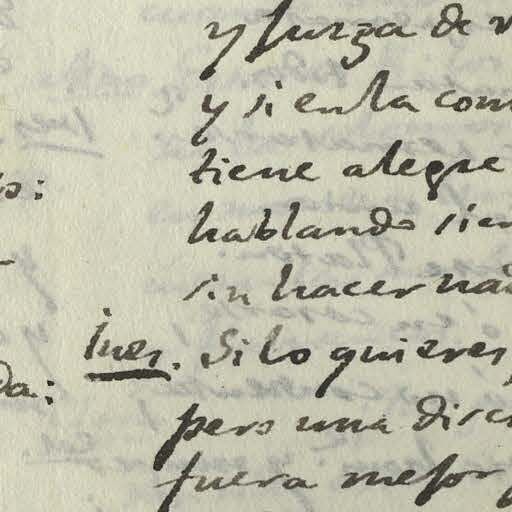 y furza de
y si en la com
tiene alegre
hablando sien
sin hacer nad
Ines. Si lo quieres,
da:
pero una disc
fuera mejor